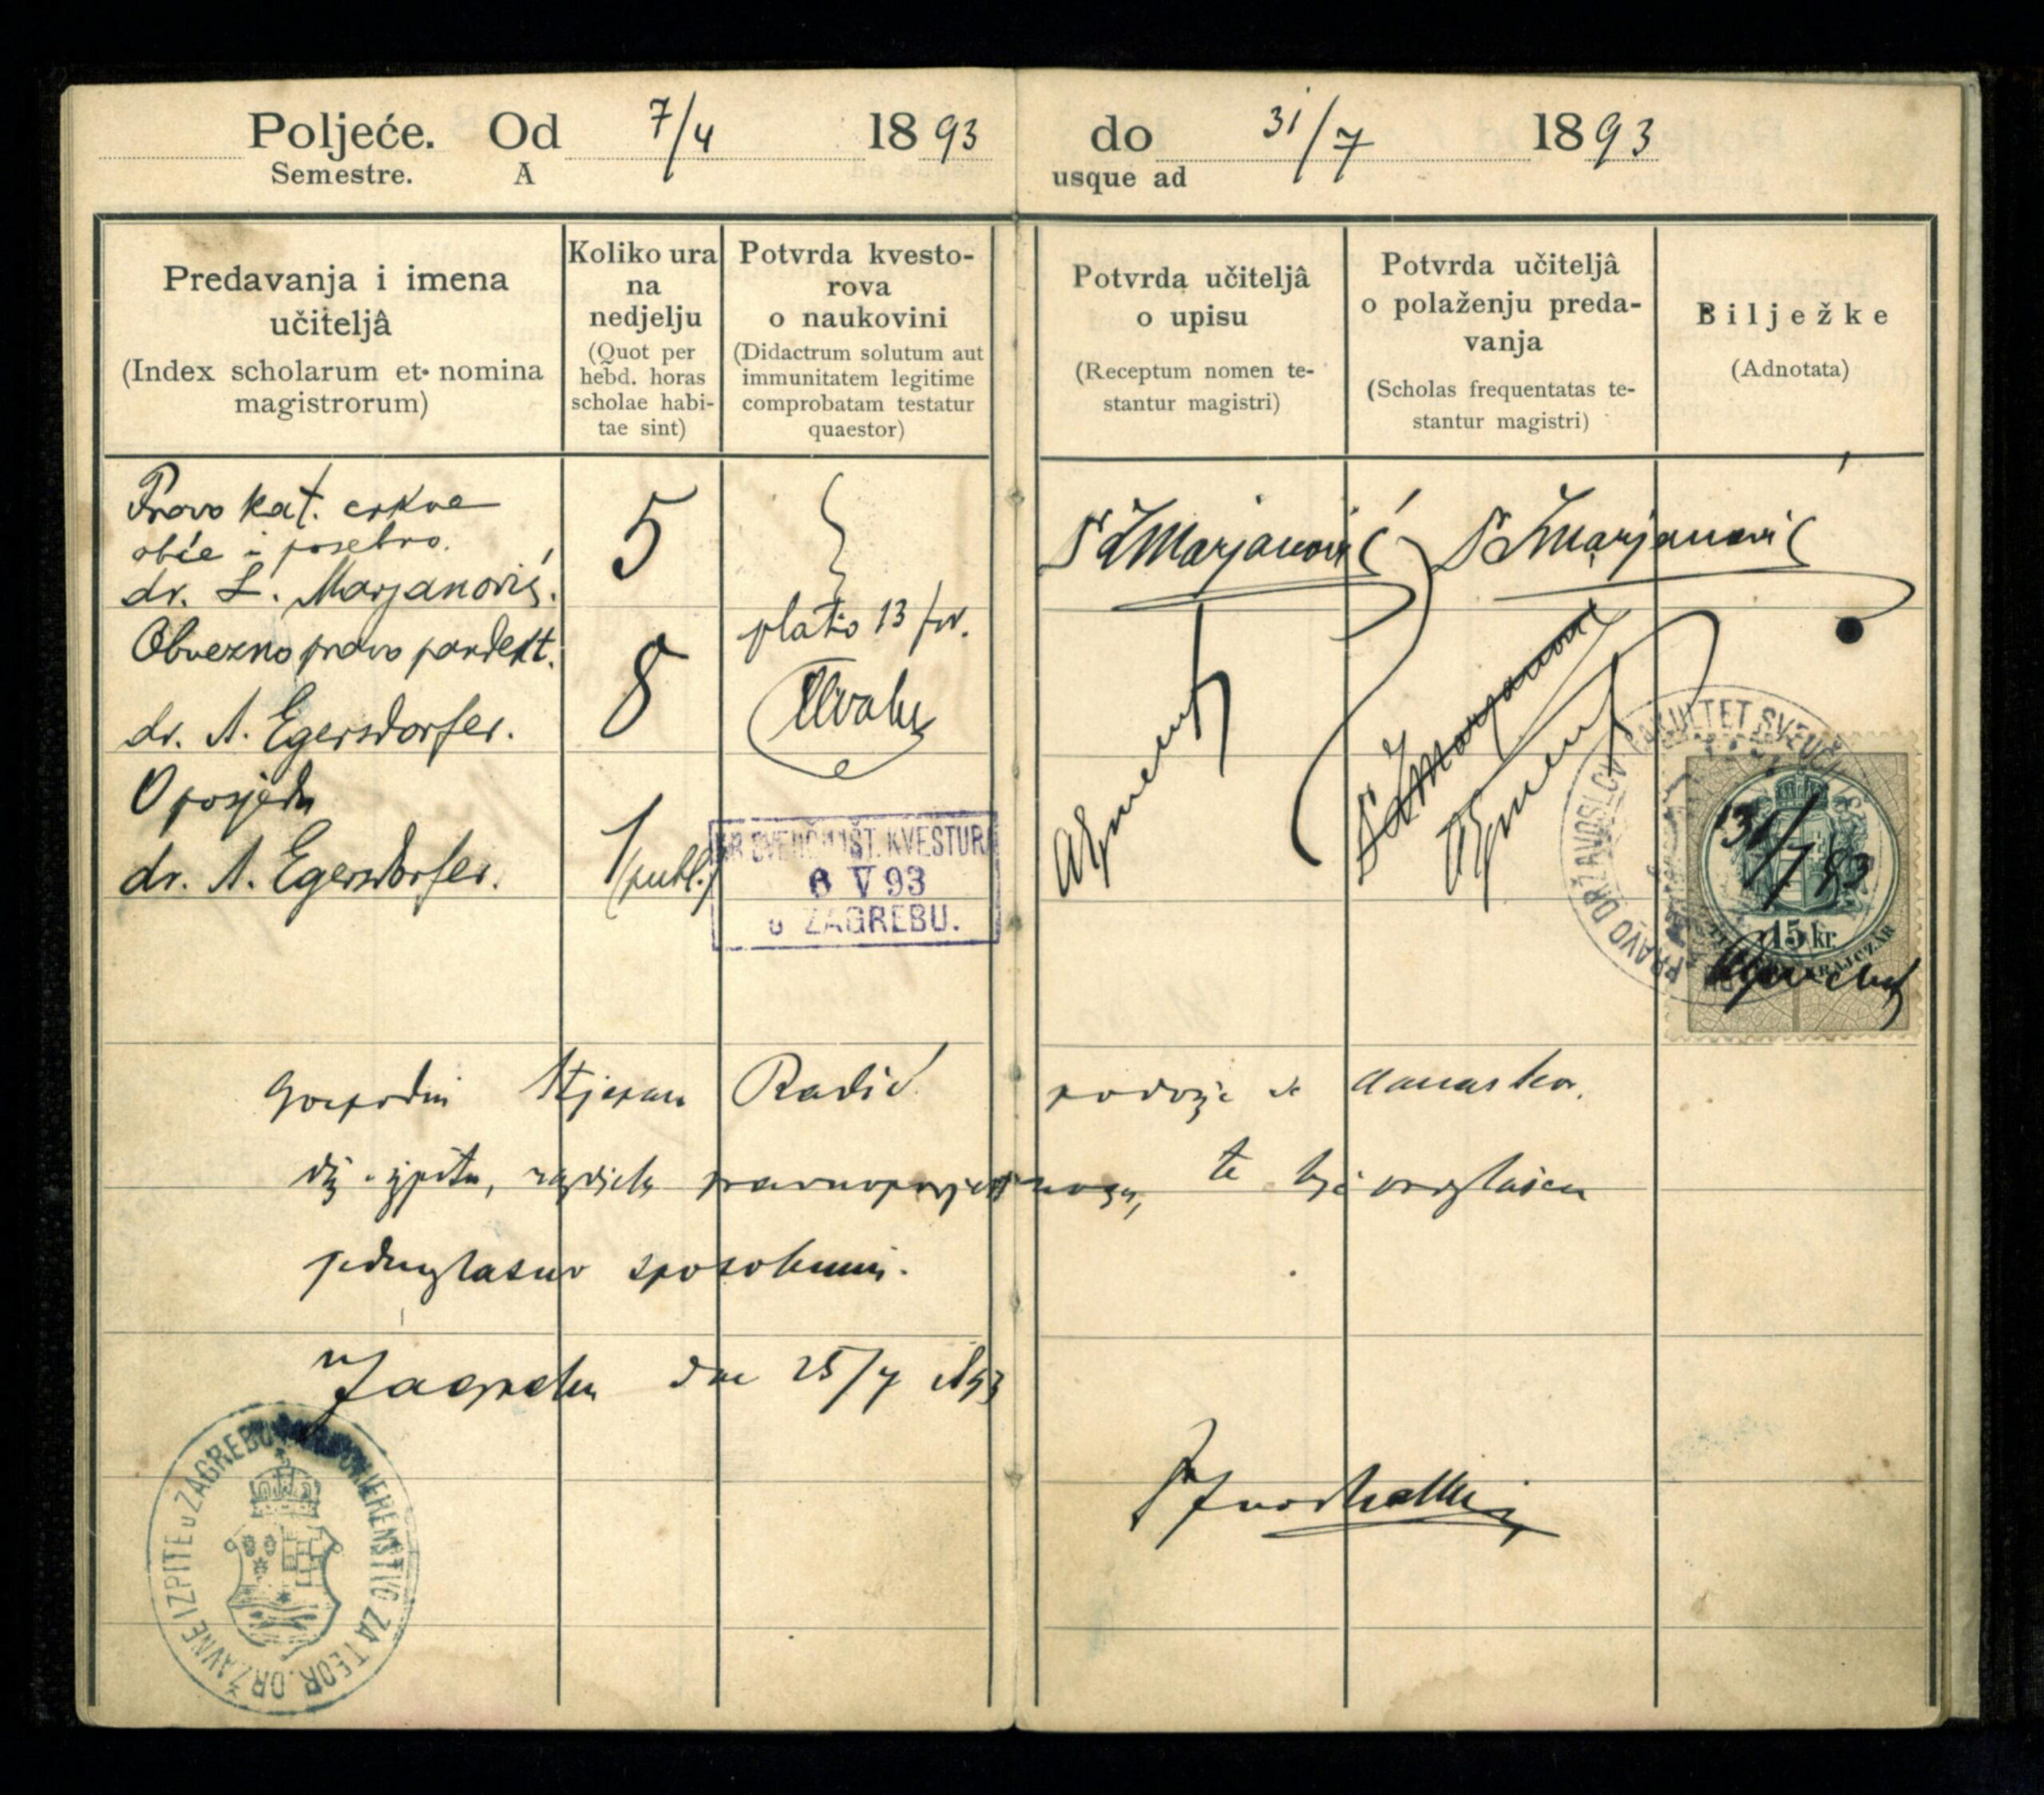 Poljeće. Od 7/4 1893 do 31/7 1893
Semestre. A usque ad
Predavanja i imena
učiteljâ
(Index scholarum et nomina
magistrorum)
Koliko ura
na
nedjelju
(Quot per
hebd. horas
scholae habi-
tae sint)
Potvrda kvesto-
rova
o naukovini
(Didactrum solutum aut
immunitatem legitime
comprobatam testatur
quaestor)
Potvrda učiteljâ
o upisu
(Receptum nomen te-
stantur magistri)
Potvrda učiteljâ
o polaženju preda-
vanja
(Scholas frequentatas te-
stantur magistri)
Bilježke
(Adnotata)
Pravo kat. crkve
obće i posebno.
dr. L. Marjanović.
5
Dr LMarjanović
Dr LMarjanović
Obvezno pravo pandekt.
dr. A. Egersdorfer.
8
platio 13 for.
Dr LMarjanović
O posjedu
dr. A. Egersdorfer.
1
(publ.)
KR. SVEUČILIŠT. KVESTURA
6 V 93
U ZAGREBU.
PRAVO DRŽAVOSLOV. FAKULTET SVEUČ
31/7 93
15 kr.
Gospodin Stjepan Radić podvrže se danas teor.
drž. izpitu, razdjela pravnopovjestnoga, te bje proglašen
jednoglasno sposobnim.
U Zagrebu dne 25/7 1893
POVJERENSTVO ZA TEOR. DRŽAVNE IZPITE U ZAGREBU